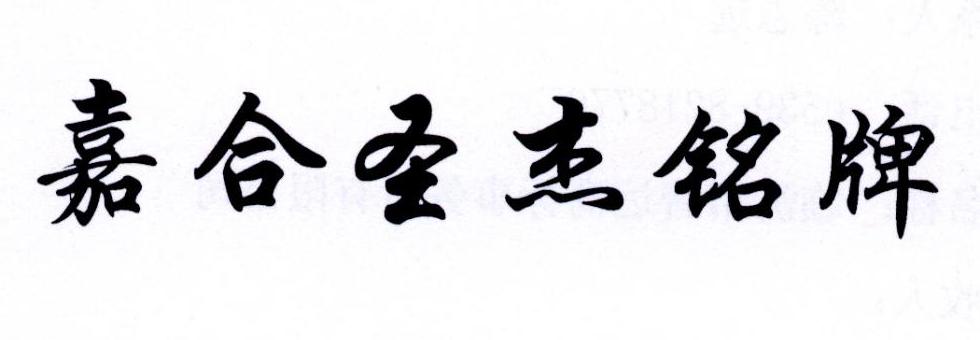 嘉合圣杰铭牌